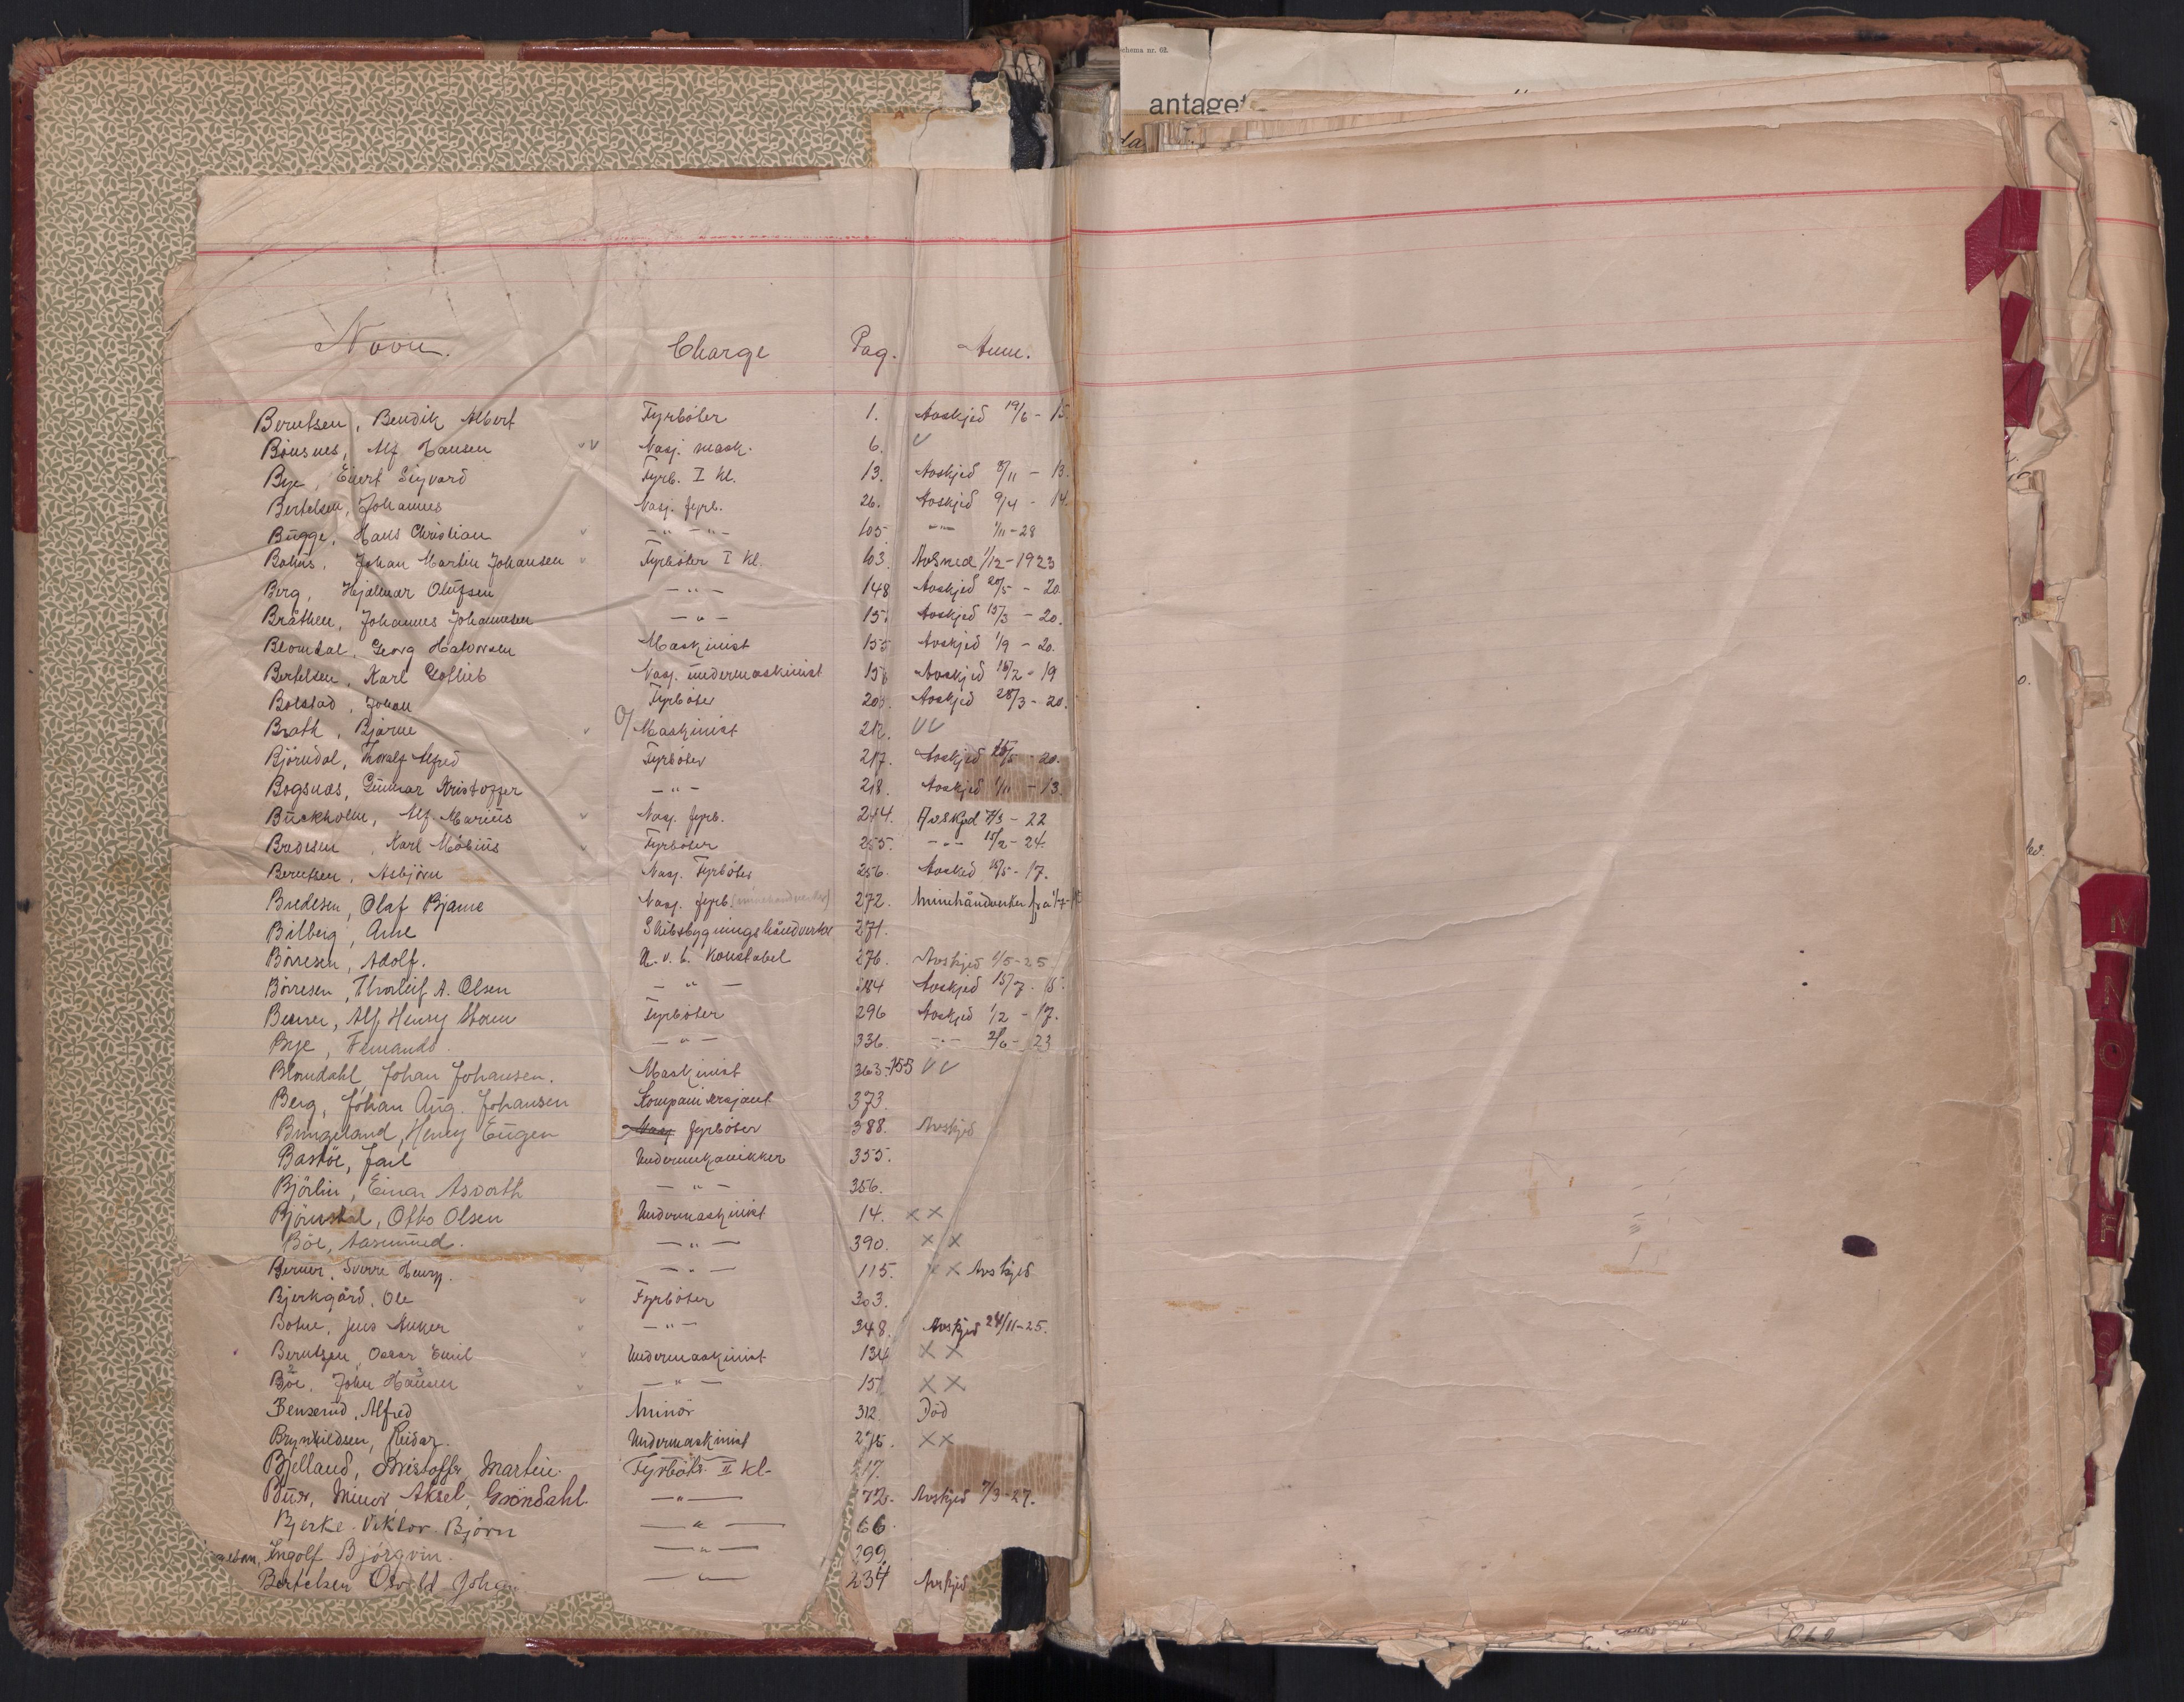 schema nr. 62.
antaget
Navn. Charge Pag. Anm.
Berntsen, Bendik Albert Fyrbøter 1. Avskjed 19/6 - 15.
Bonsnes, Alf Hansen vv Nasj. mask. 6. v
Bye, Einert Sigvard Fyrb. I kl. 13. Avskjed 8/11 - 13.
Bertelsen, Johannes Nasj. fyrb. 26. Avskjed 9/4 - 14.
Bugge, Hans Christian v -"- -"- 105. -"- 1/11-28
Johan Martin Johansen v Fyrbøter I kl. 103. 1/12-1923
Berg, Hjalmar Olufsen -"- 148 Avskjed 20/5 - 20.
Bråthen, Johannes Johannesen -"- 151 Avskjed 15/3 - 20.
Blomdal, Georg Halvorsen Maskinist 155 Avskjed 1/9 - 20.
Bertelsen, Karl Gottlieb Nasj. undermaskinist 156 Avskjed 16/2 - 19
Bolstad, Johan Fyrbøter 205. Avskjed 28/3 - 20.
Brath, Bjarne v O/ Maskinist 212. VV
Björndal, Thoralf Alfred Fyrbøter 217. Avskjed - 20.
Bogsnes, Gunnar Kristoffer -"- 218. Avskjed 1/11 - 13.
Buckholm, Alf Marius v Nasj. fyrb. 244. Avskjed 7/3 - 22
Bradesen, Karl Möbius v Fyrbøter 255. -"- 15/2 - 24.
Berntsen, Asbjörn Nasj. Fyrbøter 256. Avsked 15/5 - 17.
Bredesen, Olaf Bjarne Nasj. fyrb. (minehandverker) 272. Minehåndverker fra 1/7-
Bilberg, Arne Skibsbygningshåndverker 274.
Börresen, Adolf. U. v. b. Konstabel 276. Avskjed 1/5-25.
Börresen, Thorleif A. Olsen -"- 284 Avskjed 15/7 - 15.
Alf Henry Fyrbøter 296 Avskjed 1/2 - 17.
Bye, Fernando. -"- 336. -"- 2/6 - 23
Blomdahl, Johan Johansen. Maskinist 363-155 VV
Berg, Johan Aug. Johansen Kompani sersjant 373.
Bringeland, Henry Eugen Nasj. fyrbøter 388. Avskjed
Bastöe, Jarl Undermekanikker 355.
Björlin, Einar Asvorth -"- 356.
Björnstal, Otto Olsen Undermaskinist 14. x x
Böe, Aasmund. -"- 390. x x
Berner, Sverre Henry. -"- 115. x x Avskjed
Bjerkgård, Ole v Fyrbøter 303.
Botne, Jens Anker v -"- 348. Avskjed 24/11-25.
Berntzen, Oscar Emil v Undermaskinist 134 x x
Böe, John Hansen v -"- 151 x x
Benserud, Alfred Minör 312. Död
Brynhildsen, Reidar. Undermaskinist 275. x x
Bjelland, Kristoffer Martin. Fyrbøter II kl- 217.
Buer, Minor Aksel Gröndahl. -"- 72. Avskjed 7/3-27.
Bjerke. Viktor Björn -"- 66.
Ingolf Björgvin. -"- 299.
Bertelsen Osvald Johan -"- 234 Avskjed
N